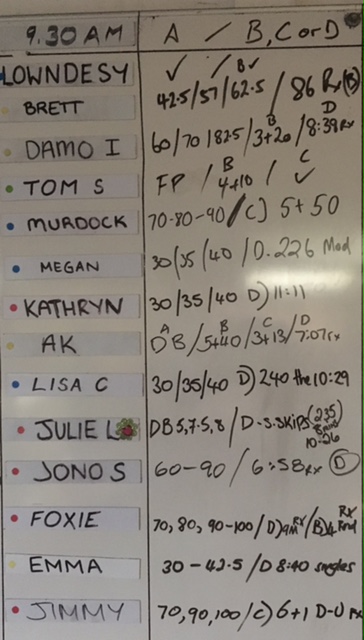 9.30 AM A / B, C or D
LOWNDESY ✓ / B✓
BRETT 42.5/57/62.5 / 86 Rx (B)
DAMO I 60/70/82.5/ B 3+20 / D 8:39 Rx
TOM S FP / B 4+10 / C ✓
MURDOCK 70-80-90 / C) 5+50
MEGAN 30/35/40 / D. 226 Mod
KATHRYN 30/35/40 D) 11:11
AK A DB / B 5+40 / C 3+13 / D 7:07 rx
LISA C 30/35/40 D) 240 10:29
JULIE L DB 5, 7.5, 8 / D - S.Skips (235
10:26
JONO S 60-90 / 6:58 Rx (D)
FOXIE 70, 80, 90-100 / D) 9M RX / (B) 4 RX Rnd
EMMA 30 - 42.5 / D 8:40 singles
JIMMY 70, 90, 100 / C) 6+1 D-U